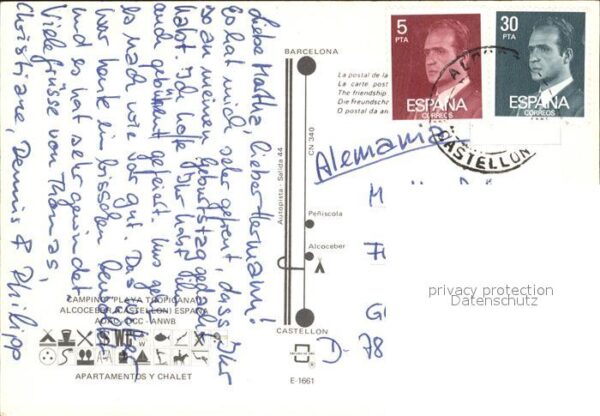 Liebe Martha, lieber Hermann!
Es hat mich sehr gefreut, dass Ihr
so an meinen Geburtstag gedacht
habt. Ich hoffe Ihr habt ihn
auch gebührend gefeiert. Uns geht
es nach wie vor gut. Das Wetter
war heute ein bisschen
und es hat sehr gewindet.
Viele Grüsse von Thomas,
Christiane, Dennis & Philipp
BARCELONA
La postal de la
La carte post
The friendship
Die Freundsch
O postal da an
Autopista - Salida 44
CN 340
Peñiscola
Alcoceber
CASTELLON
CAMPING "PLAYA TROPICANA"
ALCOCEBER (CASTELLON) ESPAÑA
ADAC - DCC - ANWB
APARTAMENTOS Y CHALET
E-1661
5
PTA
ESPAÑA
CORREOS
30
PTA
ESPAÑA
CORREOS
CASTELLON
Alemania
D-78
privacy protection
Datenschutz